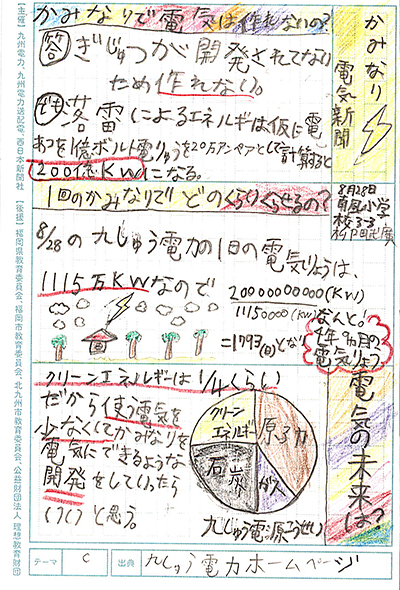 かみなり
電気新聞
8月28日
校3-3
かみなりで電気は作れないの?
答ぎじゅつが開発されてない
ため作れない。
落雷によるエネルギーは仮に電
あつを1億ボルト電りゅうを20万アンペアとして計算すると
200億KWになる。
1回のかみなりでどのくらいくらせるの?
8/28の九しゅう電力の1日の電
気りょうは、
1115万KWなので
20000000000(KW)
11150000(KW)
=1793(日)となり
なんと!
4年9カ月の
電気りょう
電気の未来は?
クリーンエネルギーは1/4くらい
だから使う電気を
少なくてかみなりを
電気にできるような
開発をしていったら
いいと思う。
クリーン
エネルギー
原子力
石炭
ガス
九しゅう電源こうせい
テーマ
C
出典
九しゅう電力ホームページ
【主催】九州電力、九州電力送配電、西日本新聞社
【後援】福岡県教育委員会、福岡市教育委員会、北九州市教育委員会、公益財団法人 理想教育財団